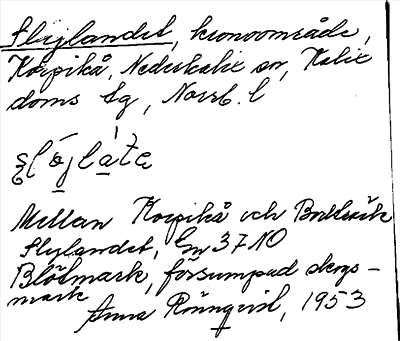 Slyjlandet, kronoområde,
Korpikå, Nederkalix sn, Kalix
doms sg, Norrb. l
Mellan Korpikå och
Slyjlandet, Em 37 NO
Blötmark, försumpad skogs-
mark
Anna Rönnqvist, 1953